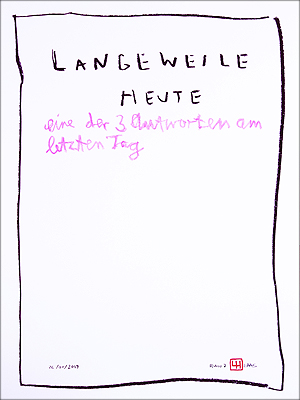 LANGEWEILE
HEUTE
eine der 3 Antworten am
letzten Tag